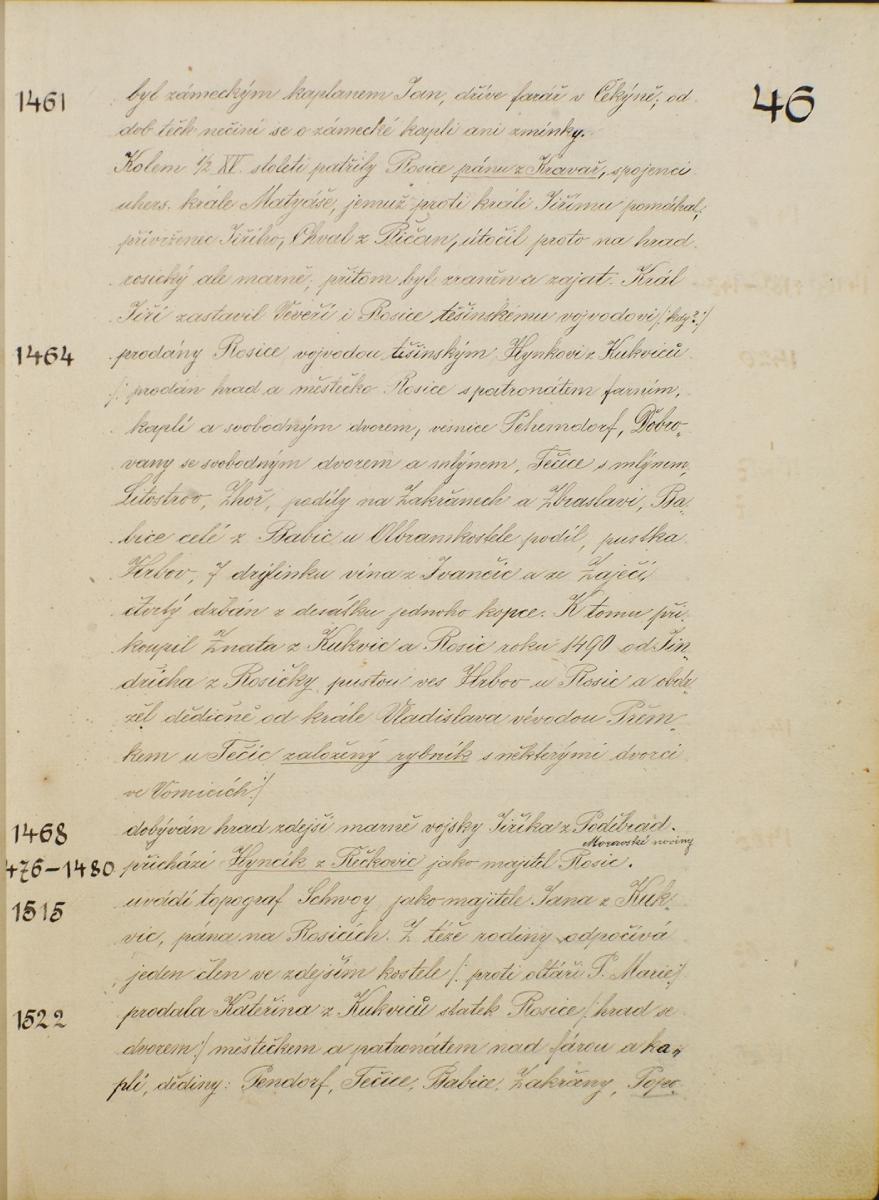 46
1461 byl zámeckým kaplanem Jan, dříve farář v Čekýně; od
dob těch nečiní se o zámecké kapli ani zmínky.
Kolem 1/2 XV. století patřily Rosice pánu z Kravař, spojenci
uhers. krále Matyáše, jemuž proti králi Jiřímu pomáhal;
přívrženec Jiřího, Chval z Říčan, útočil proto na hrad
rosický ale marně; přitom byl zraněn a zajat. Král
Jiří zastavil Veveří i Rosice těšinskému vojvodovi /: kdy? :/
1464 prodány Rosice vojvodou těšinským Hynkovi z Kukviců
/: prodán hrad a městečko Rosice s patronátem farním,
kaplí a svobodným dvorem, vesnice Pohemdorf, Dobro-
vany se svobodným dvorem a mlýnem, Tečice s mlýnem,
Litostrov, Zhoř, podíly na Zakřanech a Zbraslavi, Ba-
bice celé z Babic u Olbramkostele podíl, pustka
Hrbov, 7 drýlinku vína z Ivančic a ze Zaječí
čtvrtý džbán z desátku jednoho kopce. K tomu při-
koupil Znata z Kukvic a Rosic roku 1490 od Jin-
dřicha z Rosičky pustou ves Hrbov u Rosic a obdr-
žel dědičně od krále Vladislava vévodou Přem-
kem u Tečic založený rybník s některými dvorci
ve Vomicích :/
1468 dobýván hrad zdejší marně vojsky Jiříka z Poděbrad.
Moravské noviny
1476-1480 přichází Hynčík z Řečkovic jako majitel Rosic.
1515 uvádí topograf Schwoy jako majitele Jana z Kuk-
vic, pána na Rosicích. Z téže rodiny odpočívá
jeden člen ve zdejším kostele /: proti oltáři P. Marie :/
1522 prodala Kateřina z Kukviců statek Rosice /: hrad se
dvorem :/ městečkem a patronátem nad farou a ka-
plí, dědiny: Pendorf, Tečice, Babice, Zakřany, Popo-